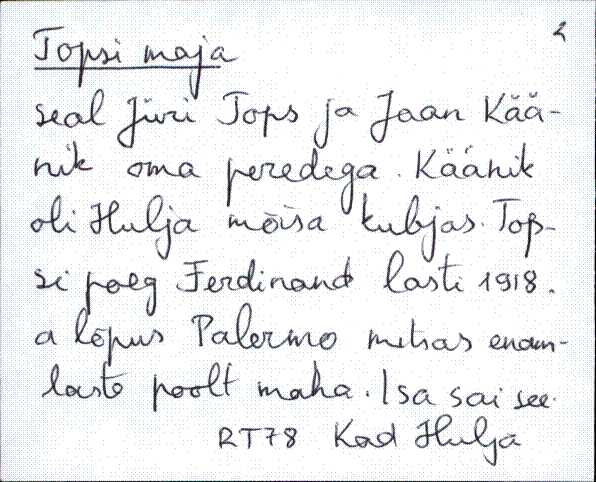 2
Topsi maja
seal Jüri Tops ja Jaan Kää-
nik oma peredega. Käänik
oli Hulja mõisa kubjas. Top-
si poeg Ferdinand lasti 1918.
a lõpus Palermo metsas enam-
laste poolt maha. Isa sai see
RT78 Kad Hulja